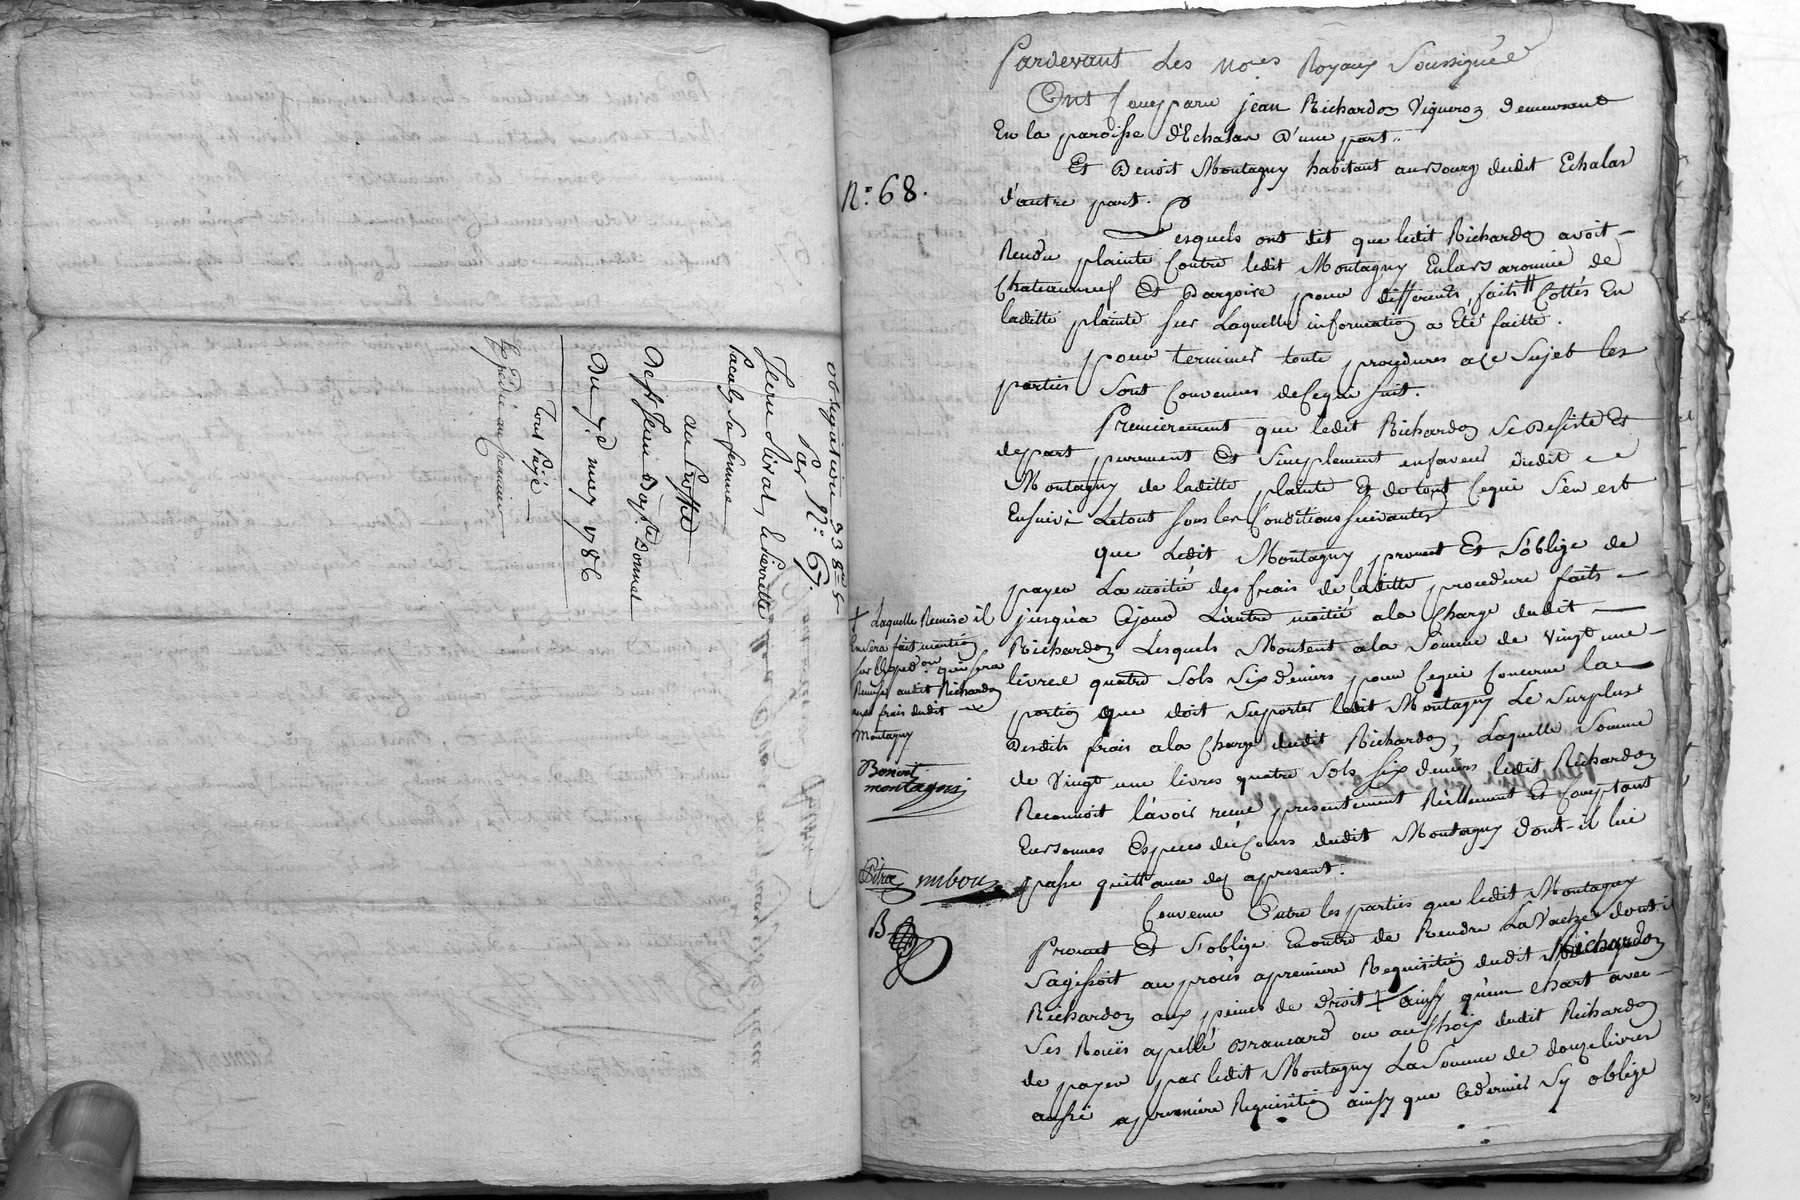 obligation 33 8
Par N.° 67.
Jean Sivat, & Pierrette
Pacaly sa femme
au Proffit
De Sr. Jean Bapte. Donnet
Du 7e. may 1786
Tout Payé
Expédié au premier
Pardevant Les No.es Royaux Soussignée
Ont Comparu jean Richardon Vigneron demeurant
En la paroisse d'Echalas D'une part..
Et Benoit Montagny habitant au Bourg dudit Echalas
d'autre part.
N.° 68.
Lesquels ont dit que ledit Richardon avoit
Rendu plainte Contre ledit Montagny En la Baronnie de
Chateauneuf Et Dargoire pour differents faits Cottés En
laditte plainte sur Laquelle information a Eté faitte.
pour terminer toute procedures a ce Sujet les
parties Sont Convenues de Ce qui suit.
Premierement que ledit Richardon Se Desiste Et
depart purement Et Simplement en faveur dudit
Montagny de laditte plainte Et de tout Ce qui S'en est
Ensuivi Le tout sous les Conditions suivantes
que Ledit Montagny promet Et S'oblige de
payer La moitié des frais de laditte procedure faits
jusqu'a Ce jour L'autre moitié a la Charge dudit
Richardon Lesquels Montent a la Somme de Vingt une
livres quatre Sols Six deniers pour Ce qui Concerne la
portion que doit Suporter ledit Montagny Le Surplus
Desdits frais a la Charge dudit Richardon, Laquelle Somme
de Vingt une livres quatre Sols Six deniers ledit Richardon
Reconnoit l'avoir reçue presentement Rèellement Et Comptant
En bonnes Especes de Cours dudit Montagny dont il lui
passe quittance des apresent.
Convenu Entre les parties que ledit Montagny
Promet Et S'oblige En outre de Rendre La Vache dont il
S'agissoit au procès a premiere Requisition dudit Richardon
Richardon aux peines de droit + ainsy qu'un Chart avec
Ses Rouës apellé Brancard ou au Choix dudit Richardon
de payer par ledit Montagny La Somme de douze livres
aussi a premiere Requisition ainsy que Ce dernier S'y oblige
+ Laquelle Remise il
En sera fait mention
sur L'Exped.on qui sera
Remise audit Richardon
aux frais dudit
Montagny
Benoit
montagni
B